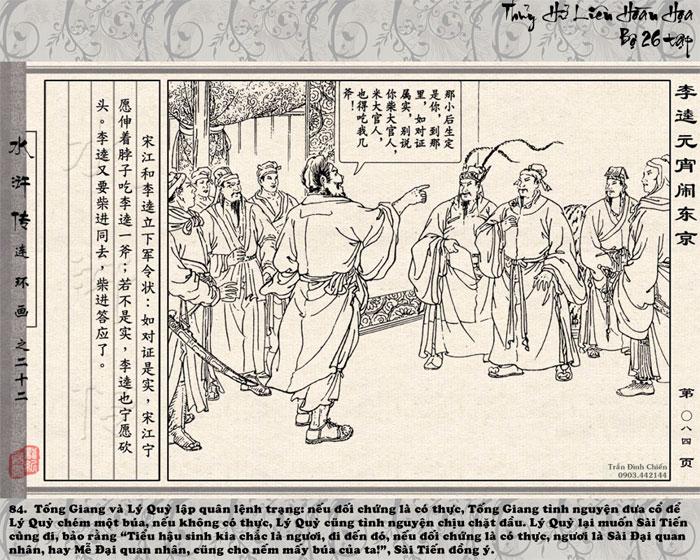 Thủy Hử Liên Hoàn Họa
Bộ 26 tập
李逵元宵闹东京
第〇八四页
那小后生定
是你，到那
里，如对证
属实，别说
你柴大官人，
米大官人，
也得吃我几
斧！
宋江和李逵立下军令状：如对证是实，宋江宁
愿伸着脖子吃李逵一斧；若不是实，李逵也宁愿砍
头。李逵又要柴进同去，柴进答应了。
水浒传连环画之二十二
Trần Đình Chiến
0903.442144
84. Tống Giang và Lý Quỳ lập quân lệnh trạng: nếu đối chứng là có thực, Tống Giang tình nguyện đưa cổ để
Lý Quỳ chém một búa, nếu không có thực, Lý Quỳ cũng tình nguyện chịu chặt đầu. Lý Quỳ lại muốn Sài Tiến
cùng đi, bảo rằng “Tiểu hậu sinh kia chắc là ngươi, đi đến đó, nếu đối chứng là có thực, ngươi là Sài Đại quan
nhân, hay Mễ Đại quan nhân, cũng cho nếm mấy búa của ta!”, Sài Tiến đồng ý.